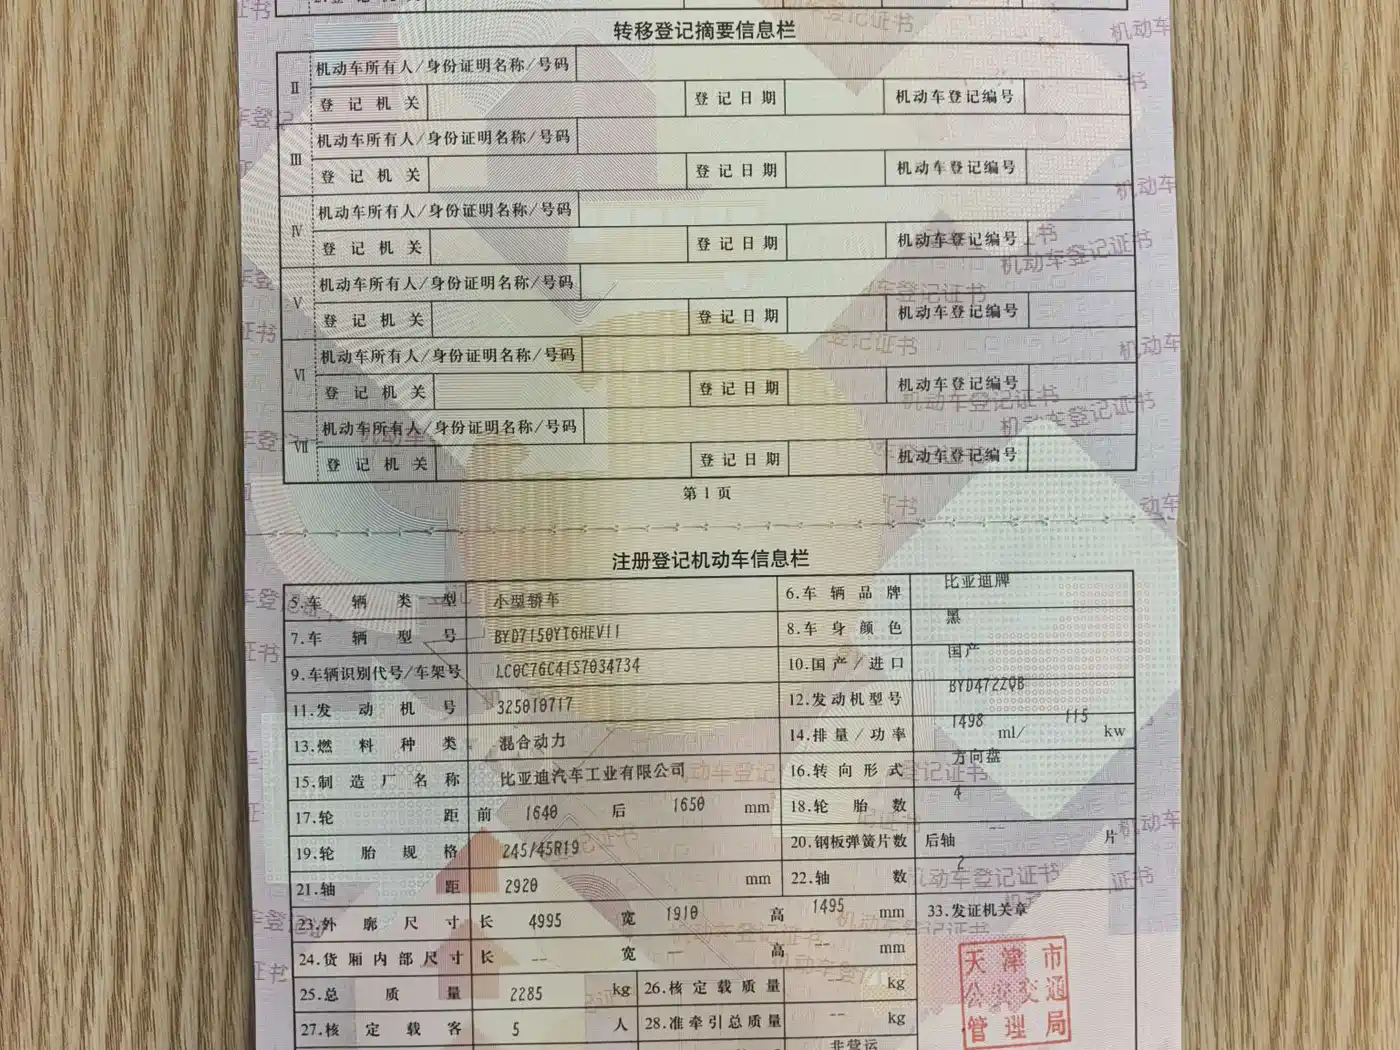 转移登记摘要信息栏
Ⅱ 机动车所有人/身份证明名称/号码
登记机关 登记日期 机动车登记编号
Ⅲ 机动车所有人/身份证明名称/号码
登记机关 登记日期 机动车登记编号
Ⅳ 机动车所有人/身份证明名称/号码
登记机关 登记日期 机动车登记编号
Ⅴ 机动车所有人/身份证明名称/号码
登记机关 登记日期 机动车登记编号
Ⅵ 机动车所有人/身份证明名称/号码
登记机关 登记日期 机动车登记编号
Ⅶ 机动车所有人/身份证明名称/号码
登记机关 登记日期 机动车登记编号
第1页
注册登记机动车信息栏
5.车辆类型 小型轿车 6.车辆品牌 比亚迪牌
7.车辆型号 BYD7150YT6HEV11 8.车身颜色 黑
9.车辆识别代号/车架号 LC0C76C41S7034734 10.国产/进口 国产
11.发动机号 325010717 12.发动机型号 BYD472ZQB
13.燃料种类 混合动力 14.排量/功率 1498 ml/ 115 kw
15.制造厂名称 比亚迪汽车工业有限公司 16.转向形式 方向盘
17.轮距 前 1640 后 1650 mm 18.轮胎数 4
19.轮胎规格 245/45R19 20.钢板弹簧片数 后轴 -- 片
21.轴距 2920 mm 22.轴数 2
23.外廓尺寸 长 4995 宽 1910 高 1495 mm 33.发证机关章
24.货厢内部尺寸 长 -- 宽 -- 高 -- mm
25.总质量 2285 kg 26.核定载质量 -- kg
27.核定载客 5 人 28.准牵引总质量 -- kg
非营运
天津市
公安交通
管理局